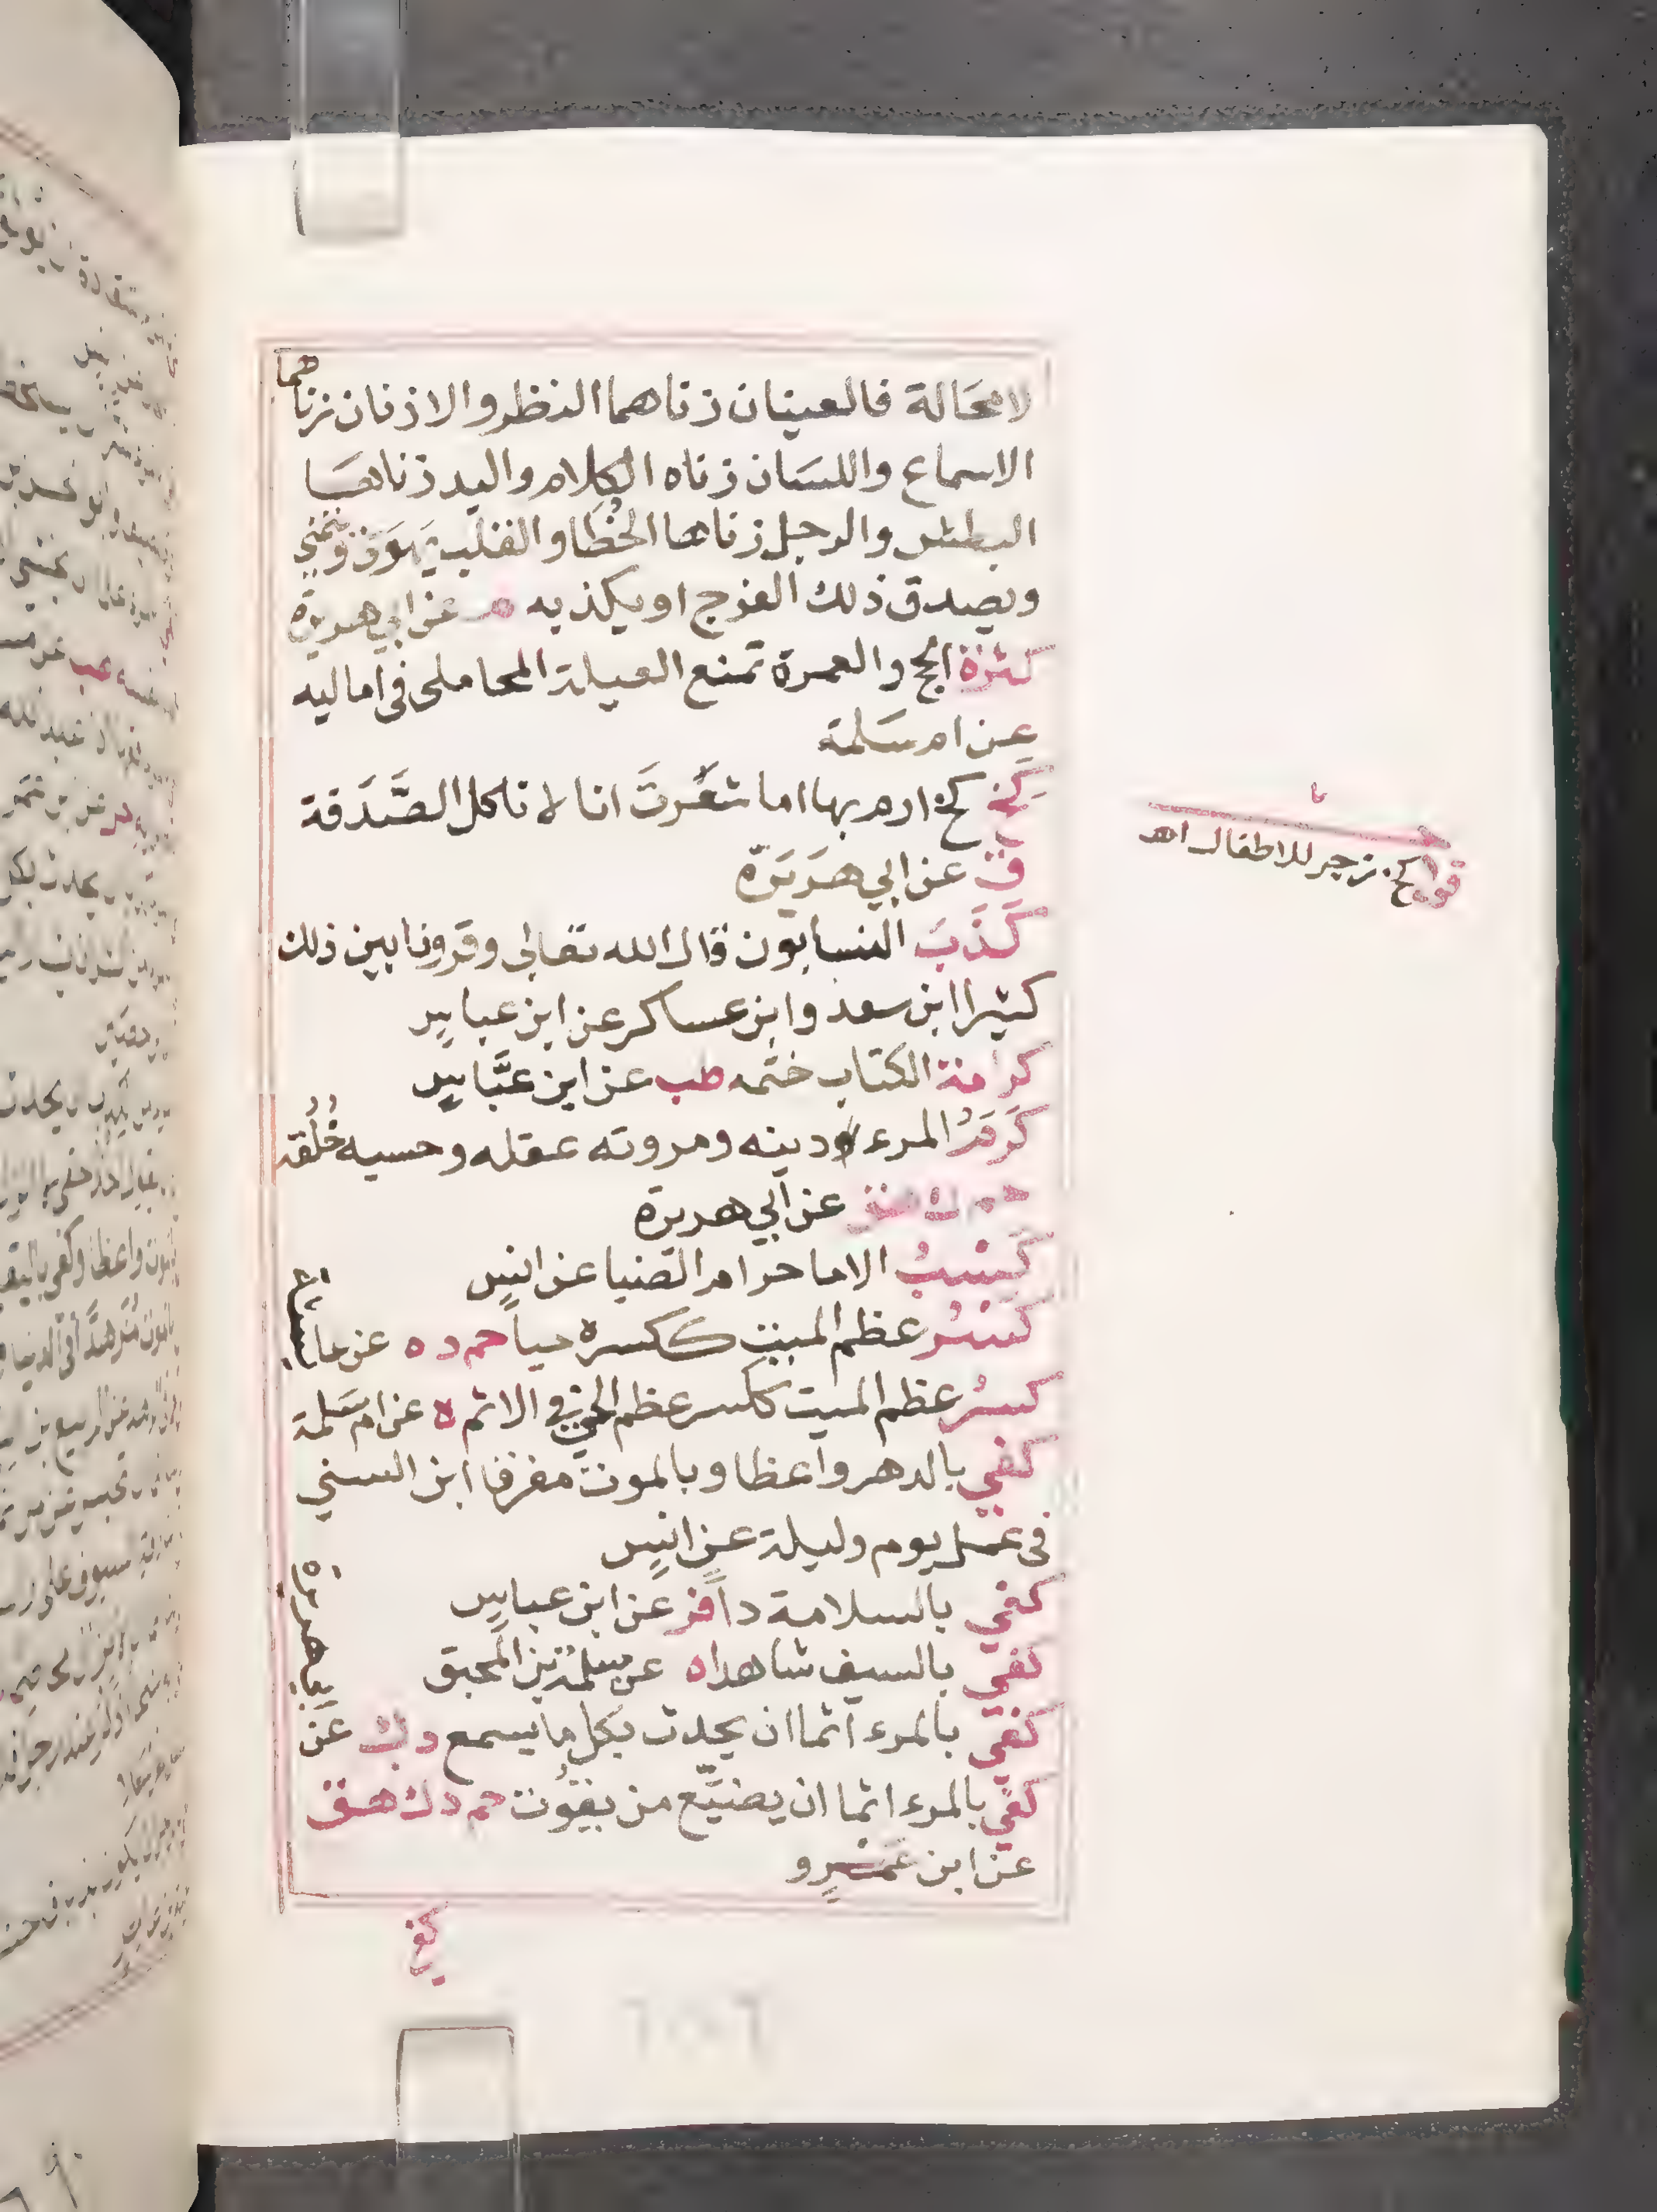 لامحَالة فالعينان زناهما النظر والاذنان زناهما
الاسماع واللسَان زناه الكلام واليد زناهسَا
البطش والرجل زناها الخُطا والقلب يَهوَى ويتمنى
ويصدق ذلك الفرج او يكذبه م عن ابي هريرة
كثرة الحج والعمرة تمنع العيلة المحاملى فى اماليه
عن ام سَلمة
كخ كخ ارم بها اما شَعَرتَ انا لا ناكل الصَّدَقة
ق عن ابي هرَيرَة
كَذَبَ النسابون قال الله تعالى وقرونا بين ذلك
كثيرا ابن سعد وابن عساكر عن ابن عباس
كرامة الكتاب ختمه طب عن ابن عبَّاس
كَرَمُ المرء دينه ومروته عقله وحسبه خُلُقه
حم ك هق عن ابي هريرة
كسْبُ الاما حرام الضيا عن انس
كسْرُ عظم الميت ككسره حياً حم د ه عن عايشة
كسرُ عظم الميت ككسر عظم الحي في الاثم ه عن ام سَلمة
كفي بالدهر واعظا وبالموت مفرقا ابن السني
فى عمل يوم وليلة عن انس
كفي بالسلامة داً فر عن ابن عباس
كفي بالسيف شاهدا ه عن سلمة بن المحبق
كفي بالمرء اثما ان يحدث بكل ما يسمع د ك عن ابي هريرة
كفي بالمرء اثما ان يضيّع من يقُوت حم د ك هق
عن ابن عَمْرٍو
كفي
قوله كخ زجر للاطفال اهـ